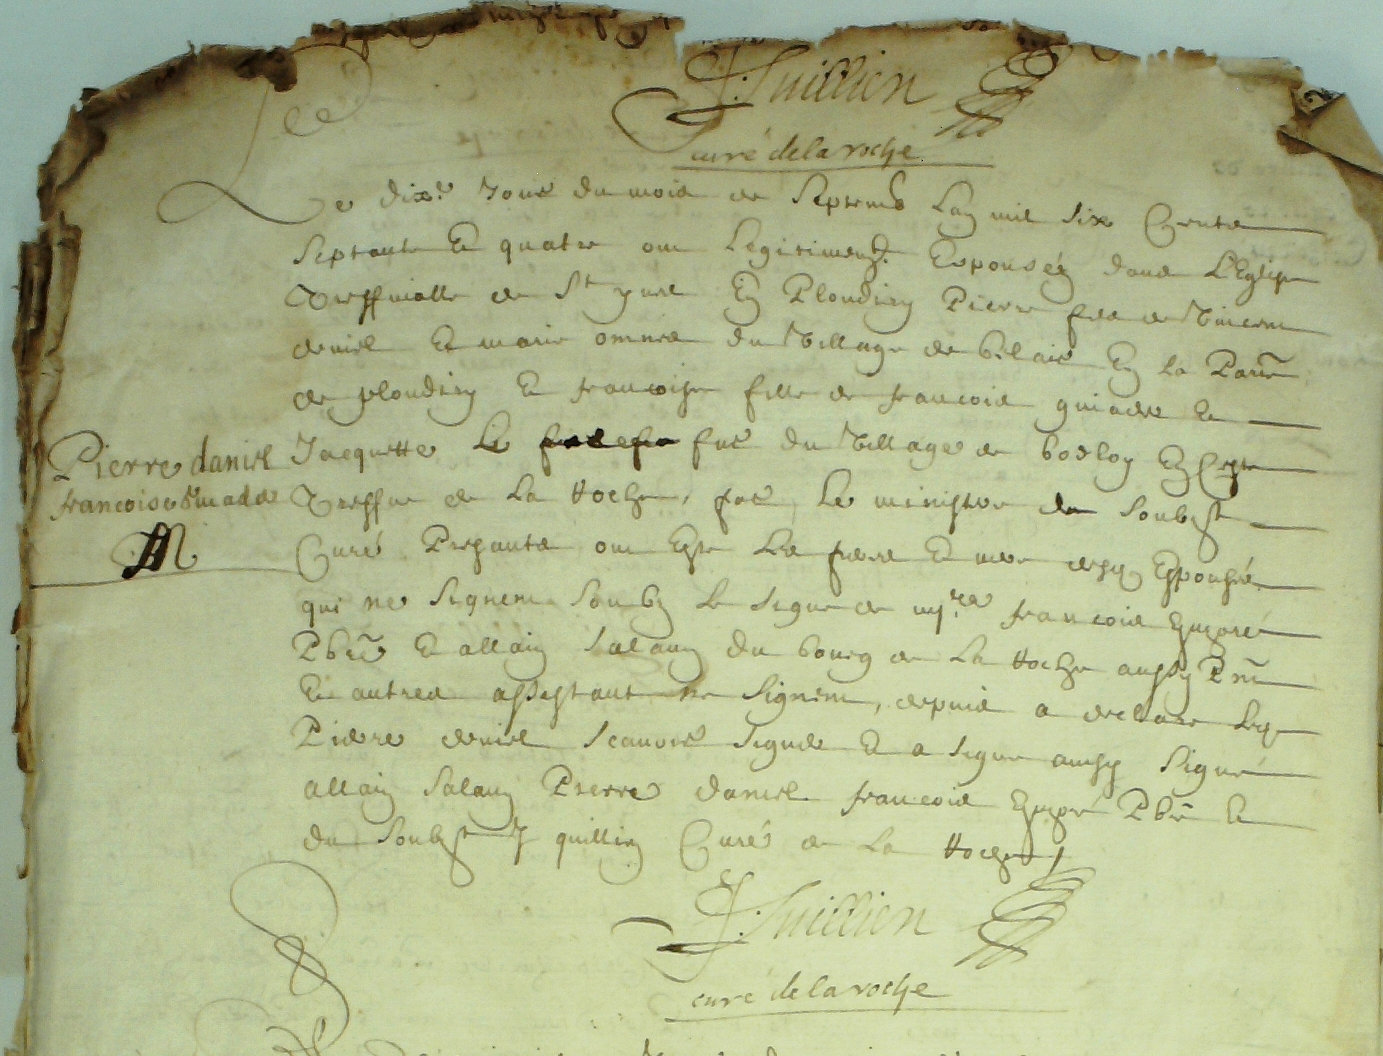 J. Guillien
curé de la roche
Le dix.e Jour du mois de Septemb Lan mil Six Cents
Septante Et quatre ont Legitimemt. Espousez dans L'Eglise
Treffvialle de St yves En Ploudiry Pierre fils de Vincent
deniel Et marie omnes du Village de bilair En La Parre
de ploudiry Et francoise fille de francois guiader Et
Pierre daniel
francoise Guiader
M
Jacquette Le fur du Village de bodloy En Cette
Treffve de La Roche, par Le ministre du Soubst
Curé Presants ont Este Les pere Et mere desd Espousés
qui ne Signent Soubz Le Signe de mre francois
Pbre Et allain Salaun du bourg de La Roche aussy Pnt
Et autres assistants ne Signent, depuis a declare Led
Pierre deniel Scavoir Signer Et a Signe aussy Signé
allain Salaun Pierre daniel francois Pbre Et
du Soubst J quillien Curé de La Roche
J. Guillien
curé de la roche